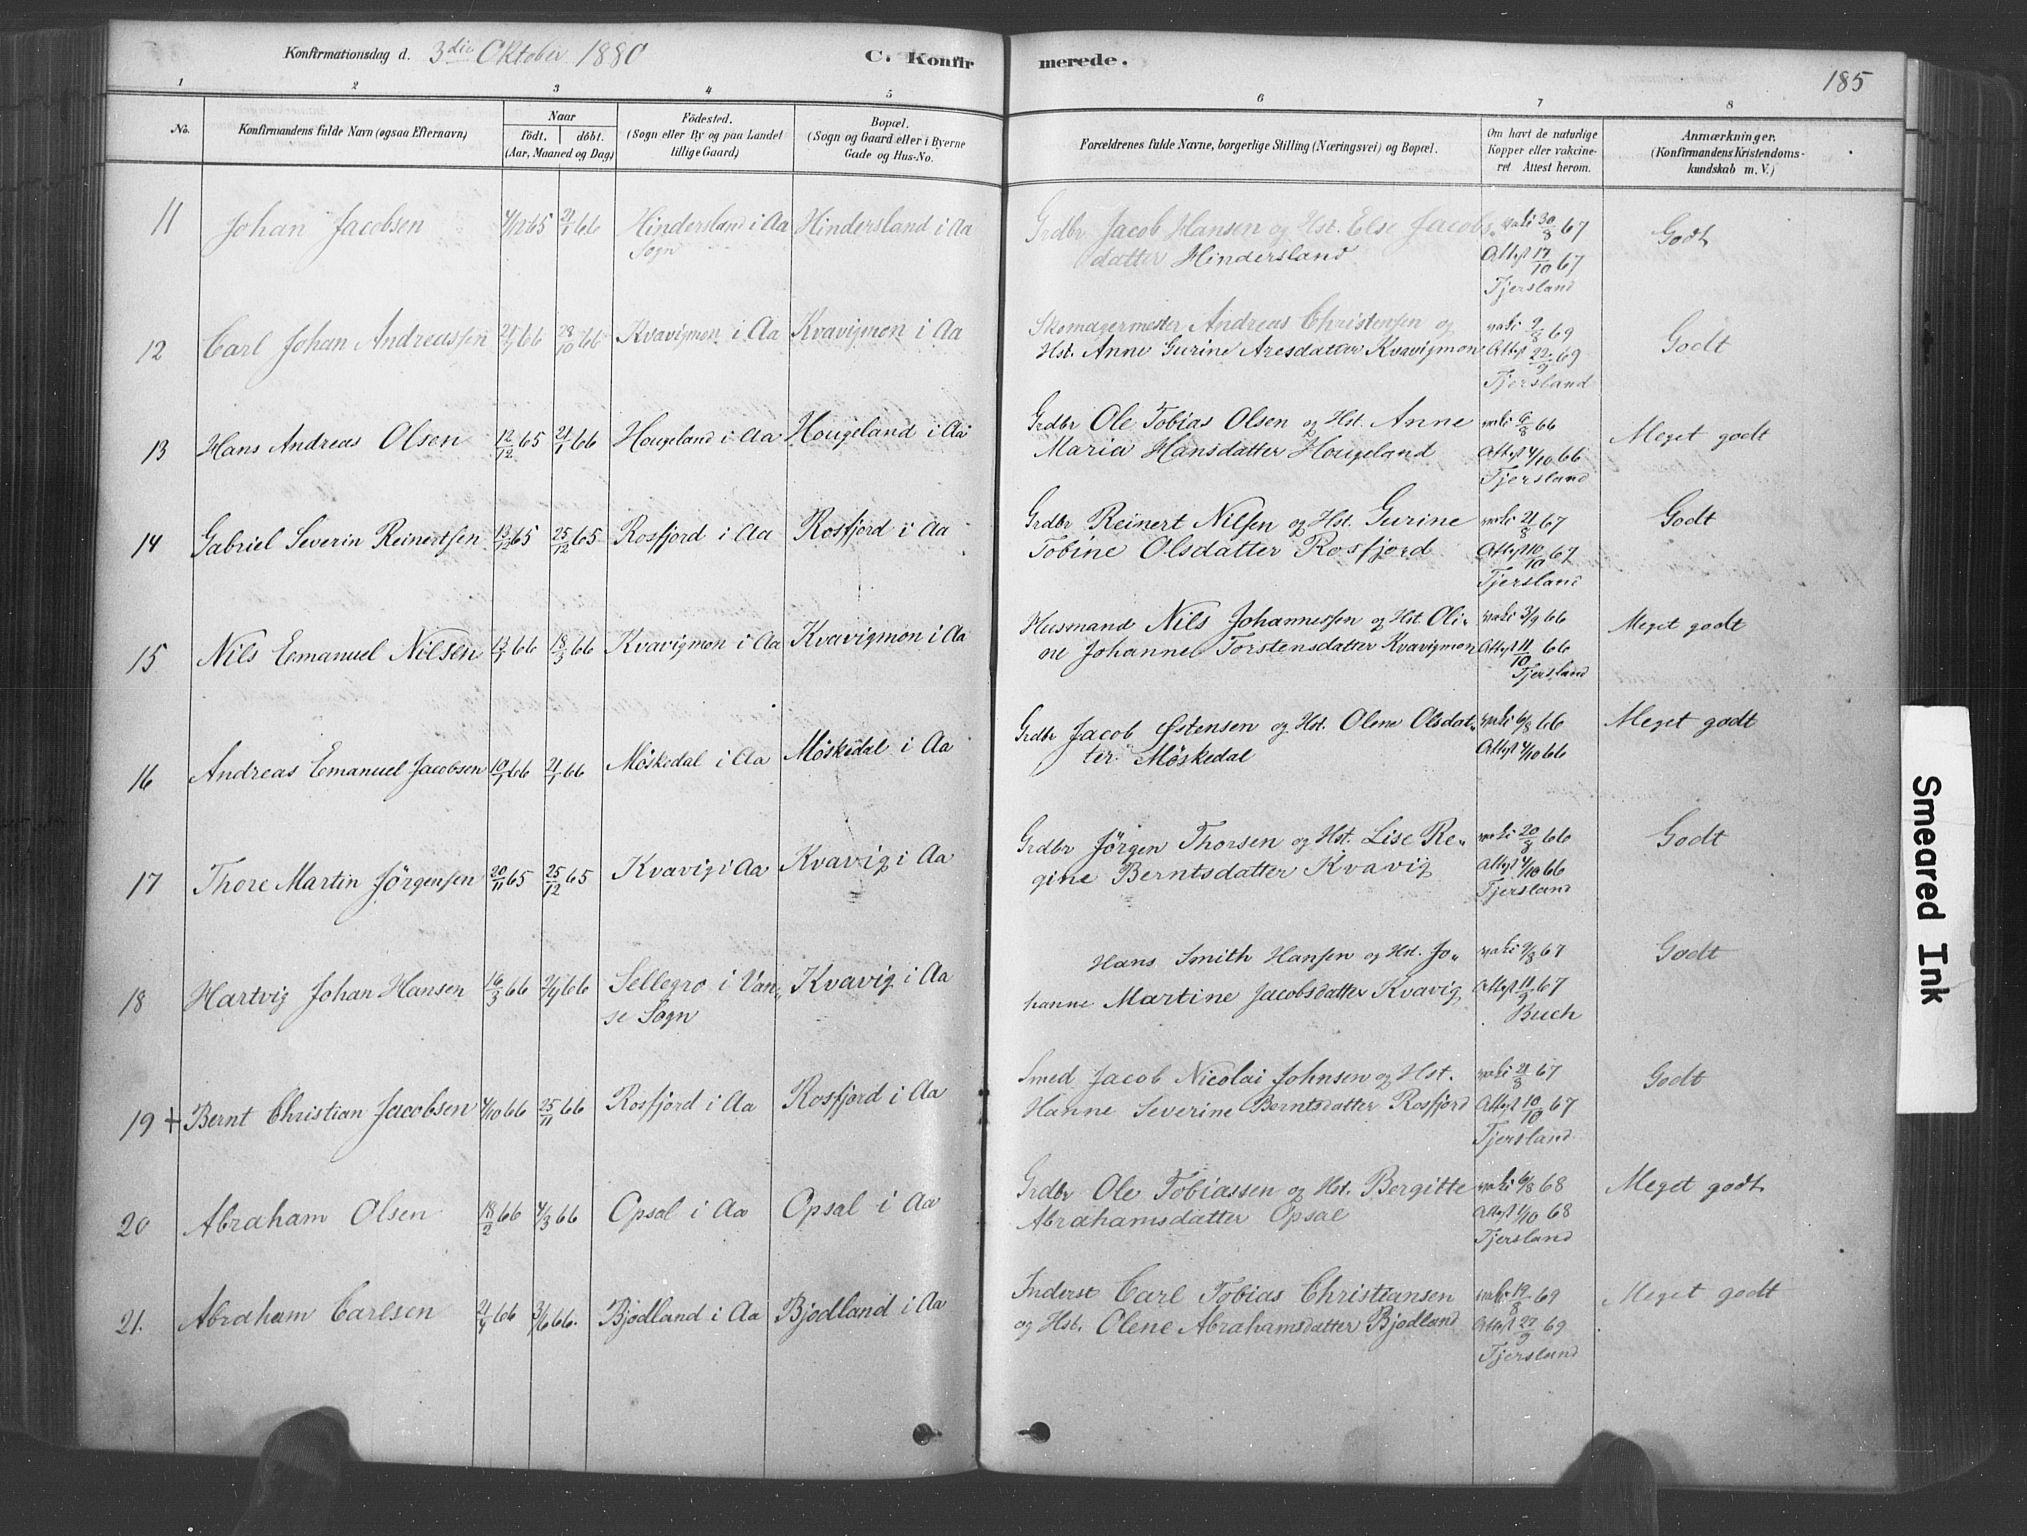 Konfirmationsdag d. 3die Oktober 1880
C. Konfirmerede.
185
1 2 3 4 5 6 7 8
No.
Konfirmandens fulde Navn (ogsaa Efternavn)
Naar
født. døbt.
(Aar, Maaned og Dag)
Fødested.
(Sogn eller By og paa Landet
tillige Gaard)
Bopæl.
(Sogn og Gaard eller i Byerne
Gade og Hus-No.
Forældrenes fulde Navne, borgerlige Stilling (Næringsvei) og Bopæl.
Om havt de naturlige
Kopper eller vakcine-
ret Attest herom.
Anmærkninger.
(Konfirmandens Kristendoms-
kundskab m. V.)
11 Johan Jacobsen 4/12 65 21/1 66 Hindersland i Aa Hindersland i Aa Grdbr Jacob Hansen og Hst. Else Jacobs- vaki 30/8 67 Godt
Sogn datter Hindersland Attest 17/10 67
Tjersland
12 Carl Johan Andreassen 66 28/10 66 Kvavigmon i Aa Kvavigmon i Aa Skomagermester Andreas Christensen og vaki 9/8 69 Godt
Hst. Anne Gurine Aresdatter Kvavigmon Attest 22/9 69
Tjersland
13 Hans Andreas Olsen 12/12 65 21/1 66 Hougeland i Aa Hougeland i Aa Grdbr Ole Tobias Olsen og Hst. Anne vaki 6/8 66 Meget godt
Maria Hansdatter Hougeland Attest 4/10 66
Tjersland
14 Gabriel Severin Reinertsen 65 25/12 65 Rosfjord i Aa Rosfjord i Aa Grdbr Reinert Nilsen og Hst. Gurine vaki 21/8 67 Godt
Tobine Olsdatter Rosfjord Attest 10/10 67
Tjersland
15 Nils Emanuel Nilsen 13/1 66 18/3 66 Kvavigmon i Aa Kvavigmon i Aa Husmand Nils Johannessen og Hst. Oli- vaki 3/9 66 Meget godt
ne Johanne Torstensdatter Kvavigmon Attest 11/10 66
Tjersland
16 Andreas Emanuel Jacobsen 10/1 66 21/1 66 Møskedal i Aa Møskedal i Aa Grdbr Jacob Østensen og Hst. Olene Olsdat- vaki 6/8 66 Meget godt
ter Møskedal Attest 4/10 66
17 Thore Martin Jörgensen 20/11 65 25/12 65 Kvavig i Aa Kvavig i Aa Grdbr Jörgen Thorsen og Hst. Lise Re- vaki 20/8 66 Godt
gine Berntsdatter Kvavig Attest 4/10 66
Tjersland
18 Hartvig Johan Hansen 16/3 66 2/4 66 Sellegro i Van- Kvavig i Aa Hans Smith Hansen og Hst. Jo- vaki 9/3 67 Godt
se Sogn hanne Martine Jacobsdatter Kvavig Attest 67
Buch
19 + Bernt Christian Jacobsen 4/10 66 25/11 66 Rosfjord i Aa Rosfjord i Aa Smed Jacob Nicolai Johnsen og Hst. vaki 21/8 67 Godt
Hanne Severine Berntsdatter Rosfjord Attest 10/10 67
Tjersland
20 Abraham Olsen 18/2 66 4/3 66 Opsal i Aa Opsal i Aa Grdbr Ole Tobiassen og Hst. Bergitte vaki 6/8 68 Meget godt
Abrahamsdatter Opsal Attest 1/10 68
Tjersland
21. Abraham Carlsen 66 3/6 66. Bjodland i Aa Bjodland i Aa Inderst Carl Tobias Christiansen vaki 19/8 69 Meget godt
og Hst. Olene Abrahamsdatter Bjodland Attest 27/9 69
Tjersland
Smeared Ink